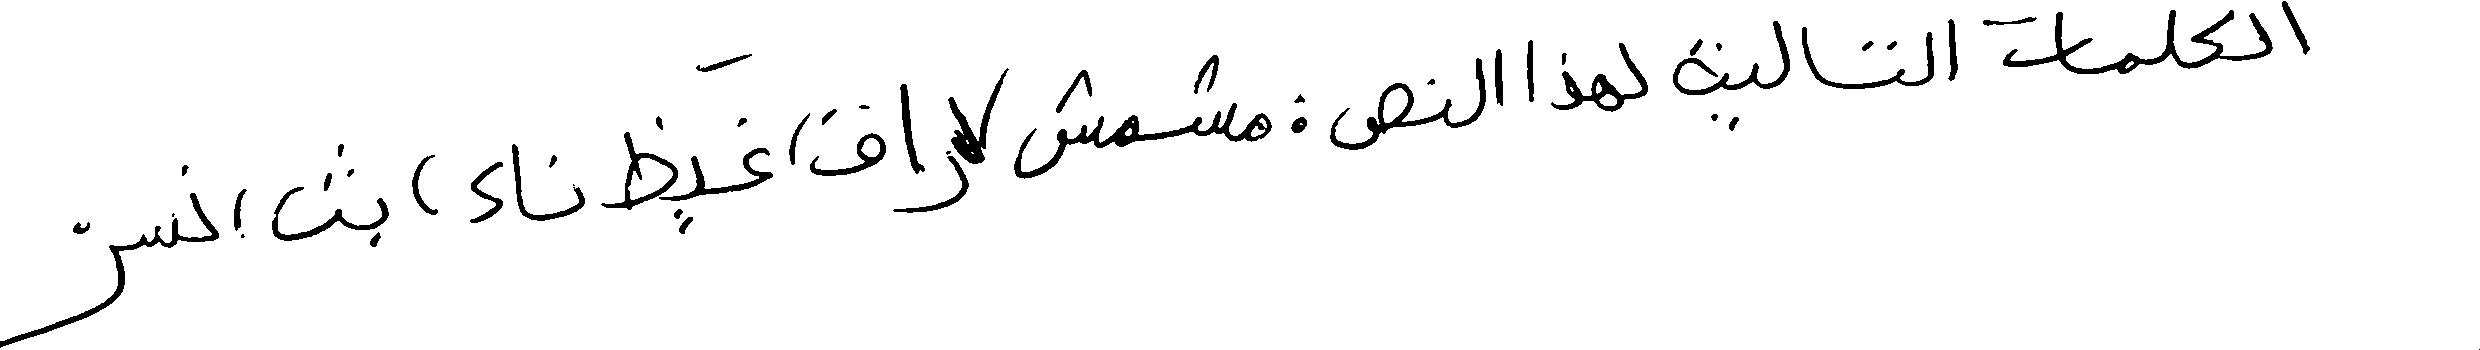 الكلمات التالية لهذا النص: مشمش لا راف، غيظ ناء، بث، نسر